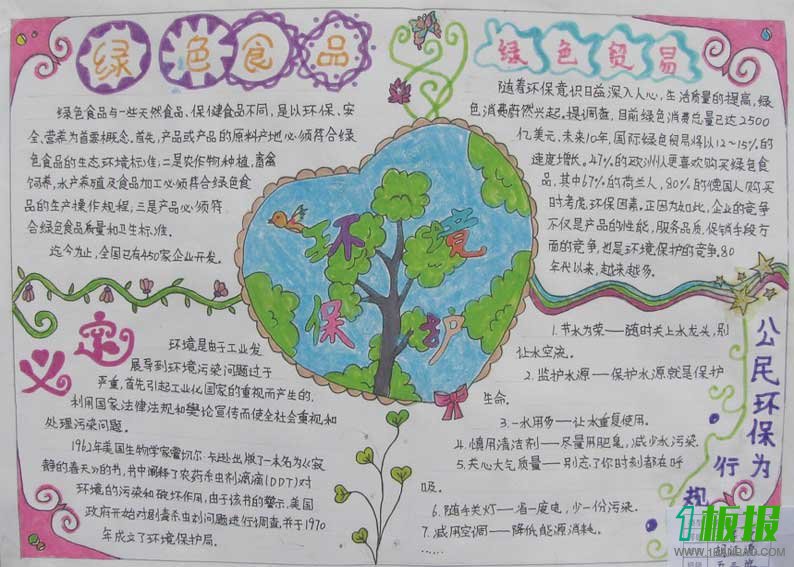 绿色食品
绿色食品与一些天然食品、保健食品不同,是以环保、安
全、营养为首要概念。首先,产品或产品的原料产地必须符合绿
色食品的生态环境标准,二是农作物种植,畜禽
饲养,水产养殖及食品加工必须符合绿色食
品的生产操作规程,三是产品必须符
合绿色食品质量和卫生标准。
迄今为止,全国已有450家企业开发。
绿色贸易
随着环保意识日益深入人心,生活质量的提高,绿
色消费蔚然兴起。据调查,目前绿色消费总量已达2500
亿美元,未来10年,国际绿色贸易将以12~15%的
速度增长。47%的欧洲人更喜欢购买绿色食
品,其中67%的荷兰人,80%的德国人购买
时考虑环保因素。正因为如此,企业的竞争
不仅是产品的性能,服务品质,促销手段方
面的竞争,也是环境保护的竞争。80
年代以来,越来越多。
环境
保护
定义
环境是由于工业发
展导到环境污染问题过于
严重,首先引起工业化国家的重视而产生的,
利用国家法律法规和舆论宣传而使全社会重视和
处理污染问题。
1962年美国生物学家蕾切尔·卡逊出版了一本名为《寂
静的春天》的书,书中阐释了农药杀虫剂滴滴(DDT)对
环境的污染和破坏作用,由于该书的警示,美国
政府开始对剧毒杀虫剂问题进行调查,并于1970
年成立了环境保护局。
公民环保为
行规
1.节水为荣——随时关上水龙头,别
让水空流。
2.监护水源——保护水源就是保护
生命。
3.一水用多——让水重复使用。
4.慎用清洁剂——尽量用肥皂,减少水污染。
5.关心大气质量——别忘了你时刻都在呼
吸。
6.随手关灯——省一度电,少一份污染。
7.减用空调——降低能源消耗。
……
1板报
WWW.1BANBAO.COM